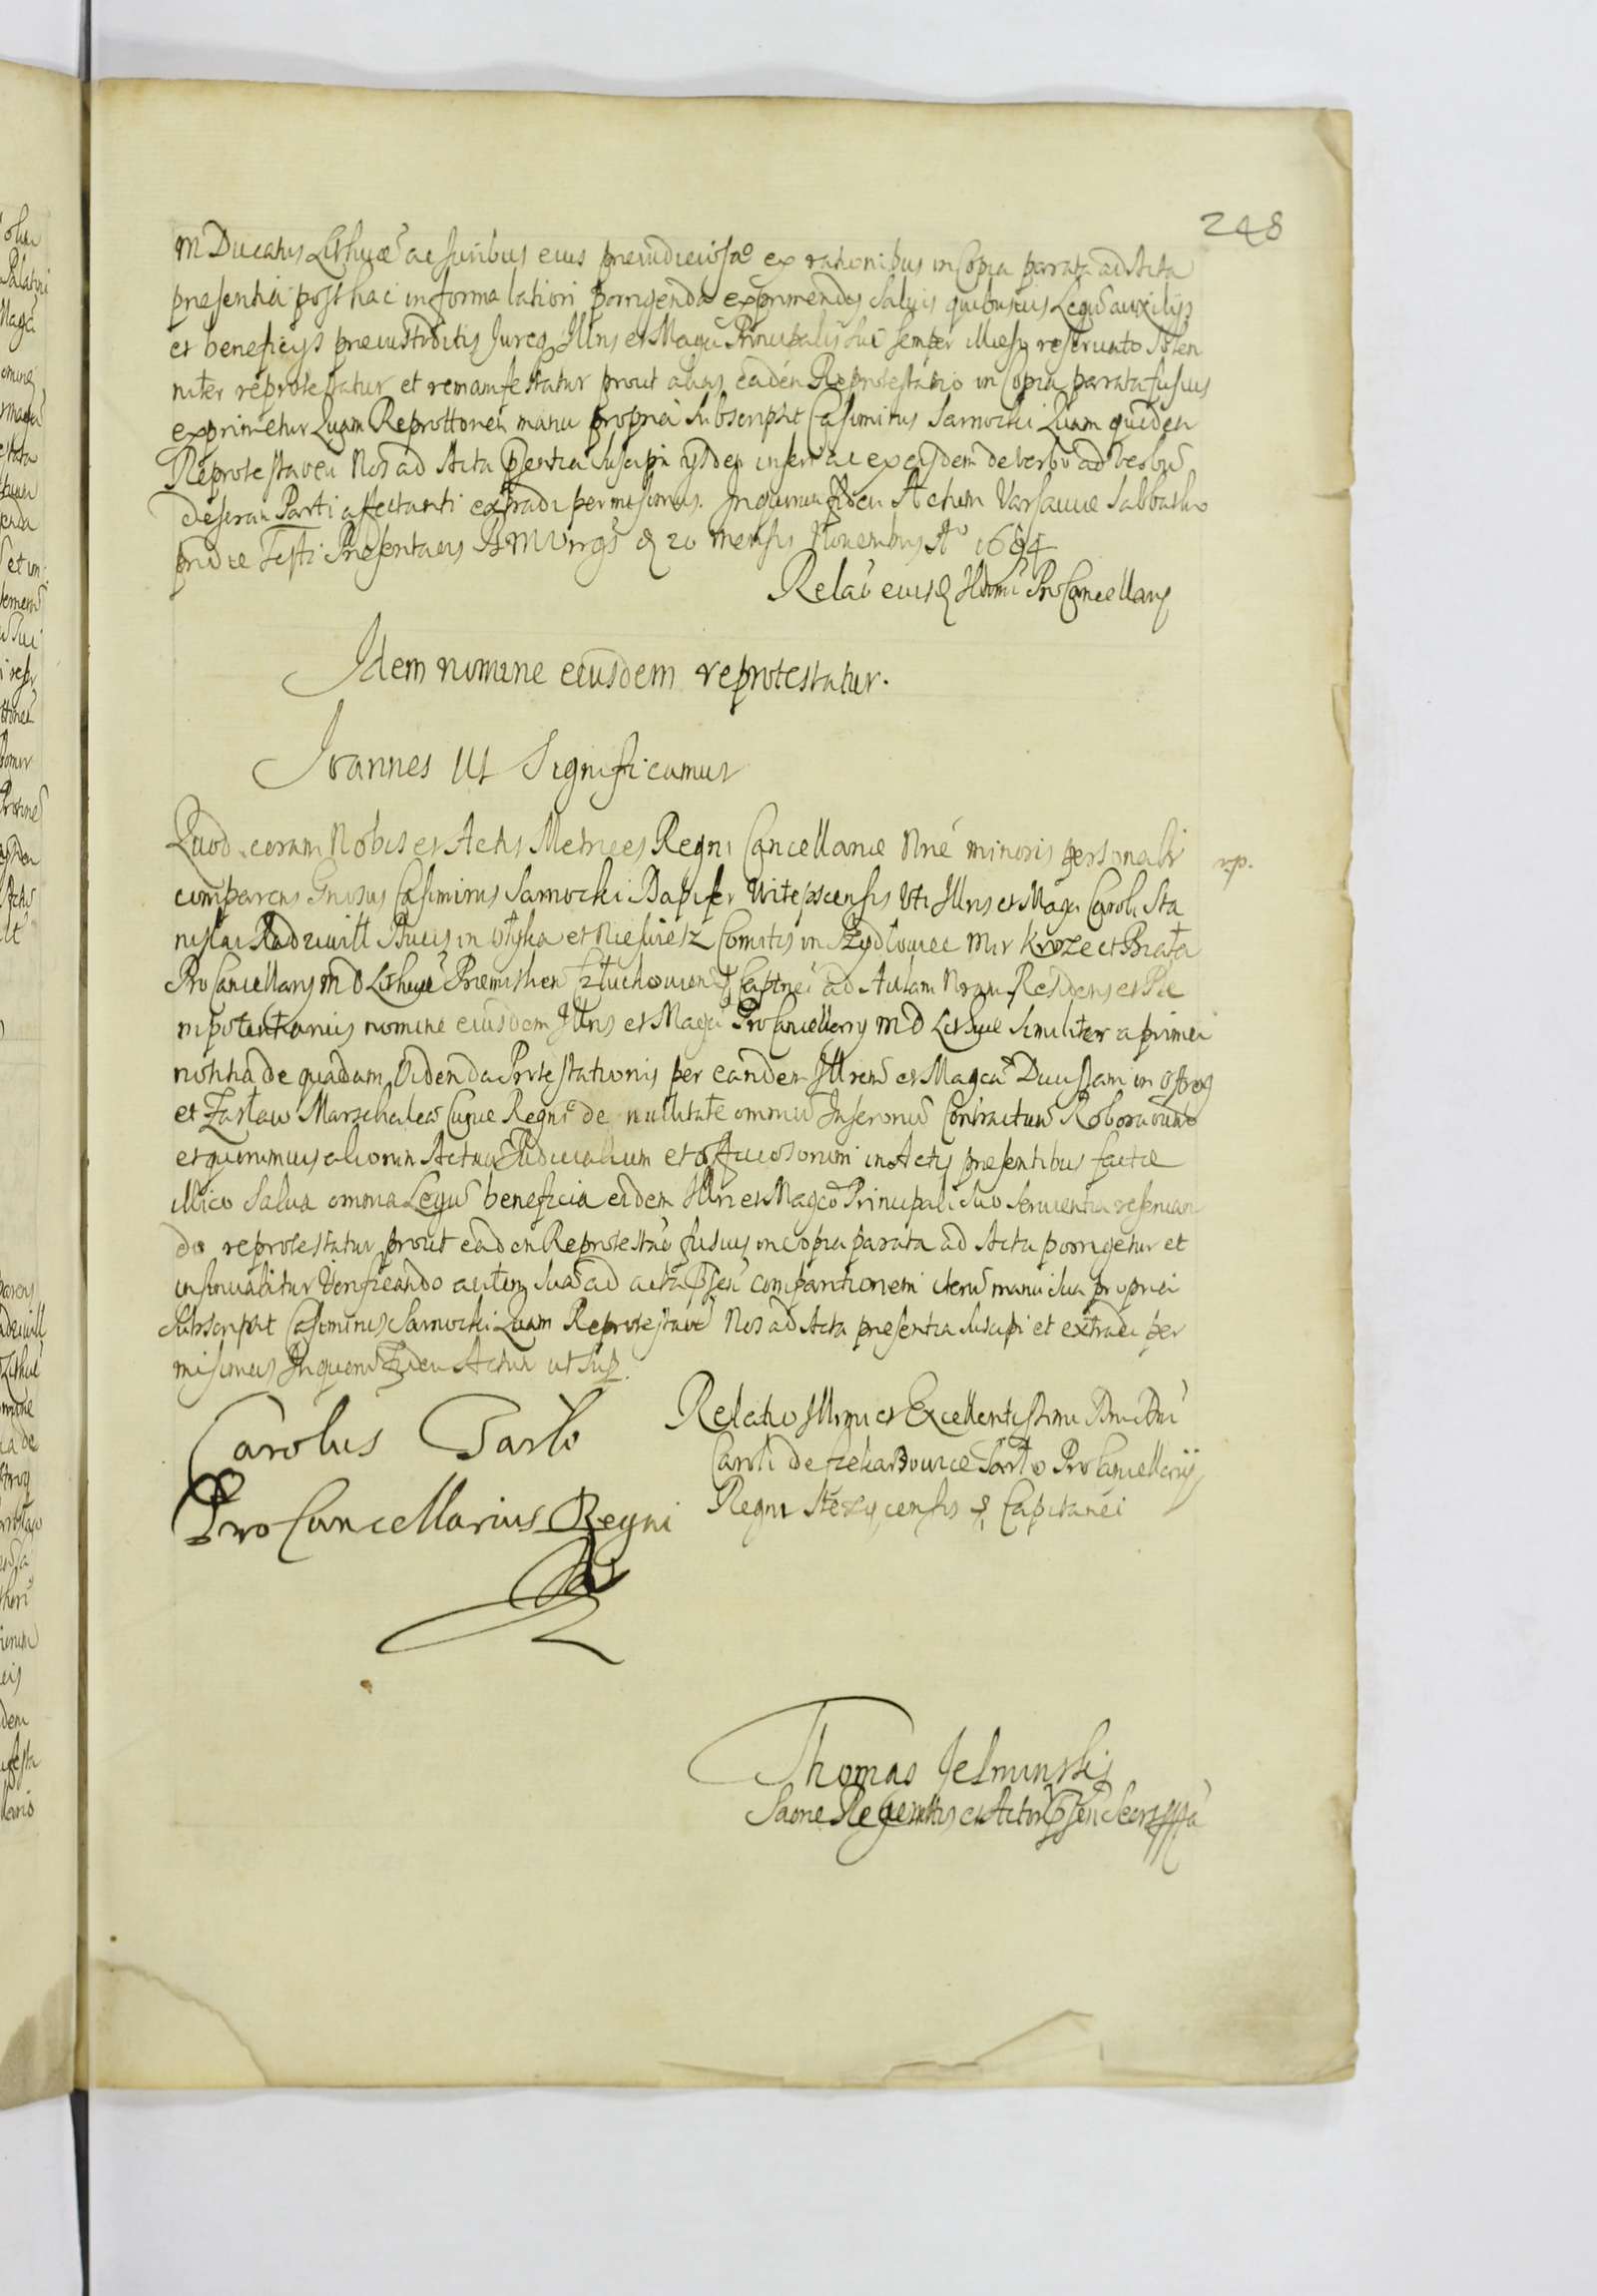 248
M Ducatus Lithuae ac Juribus eius preiudiciosa ex rationibus in Copia parata ad Acta
presentia post hac in forma latiori porrigenda exprimendis Salvis quibusvis Legu auxilijs
et beneficijs precustoditis Jureq Illris et Magci Principalis sui semper illaeso reservato Solen
niter reprotestatur et remanifestatur prout alias eadem Reprotestatio in Copia parata fusius
exprimetur Quam Reprottonem manu propria Subscripsit Casimirus Sarnocki Quam quidem
Reprotestaoem Nos ad Acta psentia Suscipi ijsdem inseri ac ex eisdem de verbo ad verbu
Parti affectanti extradi permisimus. In quorum fidem Actum Varsaviae Sabbatho
pridie Festi Presentaois B M Virgis d 20 mensis Novembris Ao 1694
Relao eiusd Illmi ProCancellarij
Idem nomine eiusdem reprotestatur.
Joannes III Significamus
Quod coram Nobis et Actis Metrices Regni Cancellariae Nrae minoris personalr
rp.
comparens Gnosus Casimirus Sarnocki Dapifer Vitepscensis Uti Illris et Magci Caroli Sta
nislai Radziwill Ducis in Ołyka et Nieswiesz Comitis in Szydłowiec Mir Kroze et Biała
ProCancellarij M D Lithuae Premislien Człuchovien & Captnei ad Aulam Nram Residens et Ple
nipotentarius nomine eiusdem Illris et Magci ProCancellarij M D Lithuae Similiter a prima
notitia de quadam Videnda Protestationis per eandem Illrem et Magcam Ducissam in Ostrog
et Zasław Marschalca Curiae Regni de nullitate omniu Inseronu Contractuu Roboraonu
et quorumvis aliorum Actuu Judicialium et officiosorum in Actis presentibus factae
illico Salva omnia Legu beneficia eidem Illri et Magco Principali suo Servientia reservan
do reprotestatur prout eadem Reprotestao fusius in copia parata ad Acta porrigetur et
insinuabitur Verificando autem suam ad acta psen comparitionem iteru manu sua propria
Subscripsit Casimirus Sarnocki Quam Reprotestaoe Nos ad Acta presentia Suscipi et extradi per
misimus In quoru Fidem Actum ut Sup.
Carolus Tarło
ProCancellarius Regni
Relatio Illmi et Excellentissimi Dni Dni
Caroli de Czekarzowice Tarło ProCancellarij
Regni Stezycensis & Capitanei
Thomas Jelminski
Sacrae Regentis et Actor psen Secrs